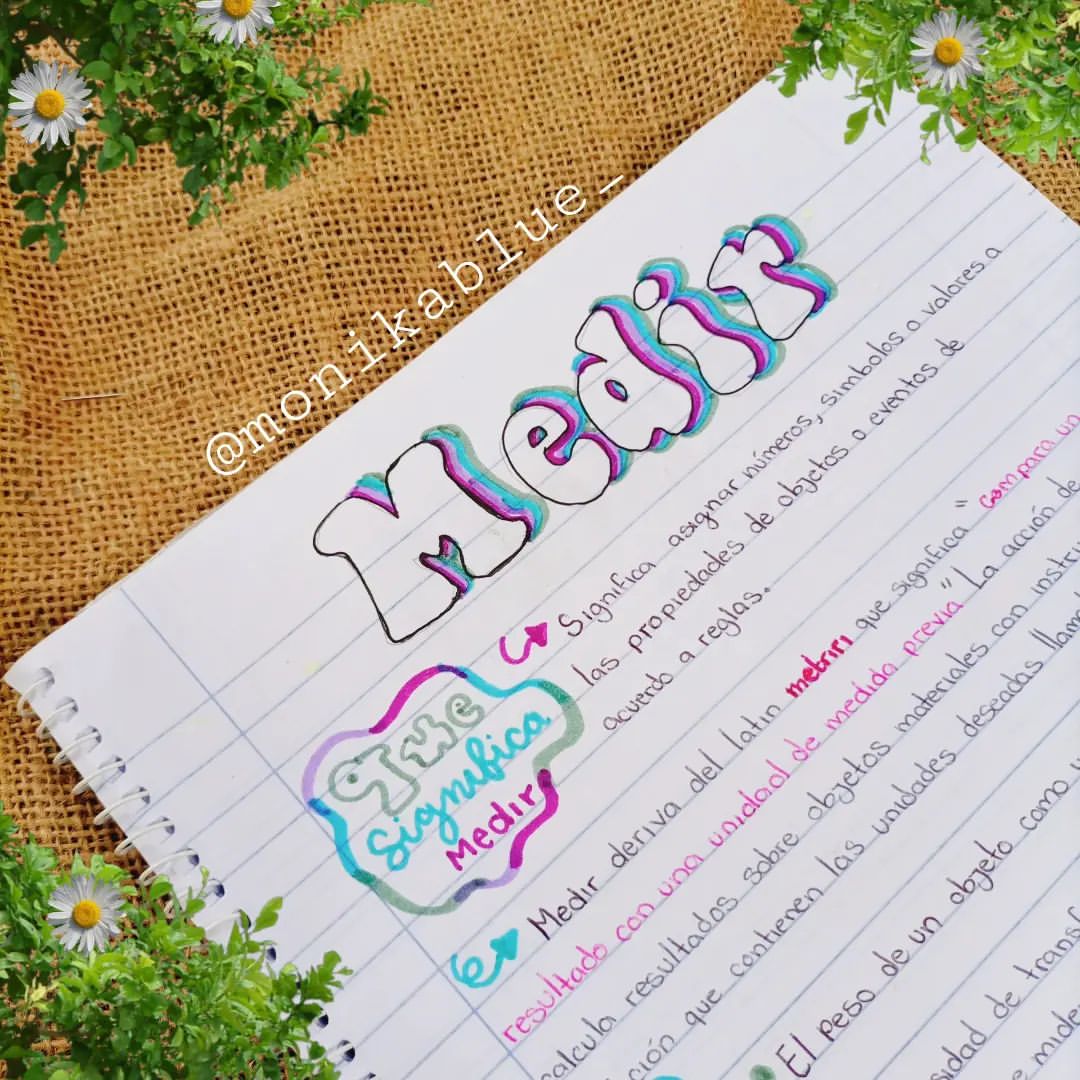 @monikablue_
Medir
Significa asignar números, simbolos o valores a
las propiedades de objetos o eventos de
acuerdo a reglas.
Que
Significa
Medir
Medir deriva del latin metriri que significa " compara un
resultado con una unidad de medida previa" La acción de
calcula resultados sobre objetos materiales con instru
ción que contienen las unidades deseadas llam
El peso de un objeto como
sidad de transf